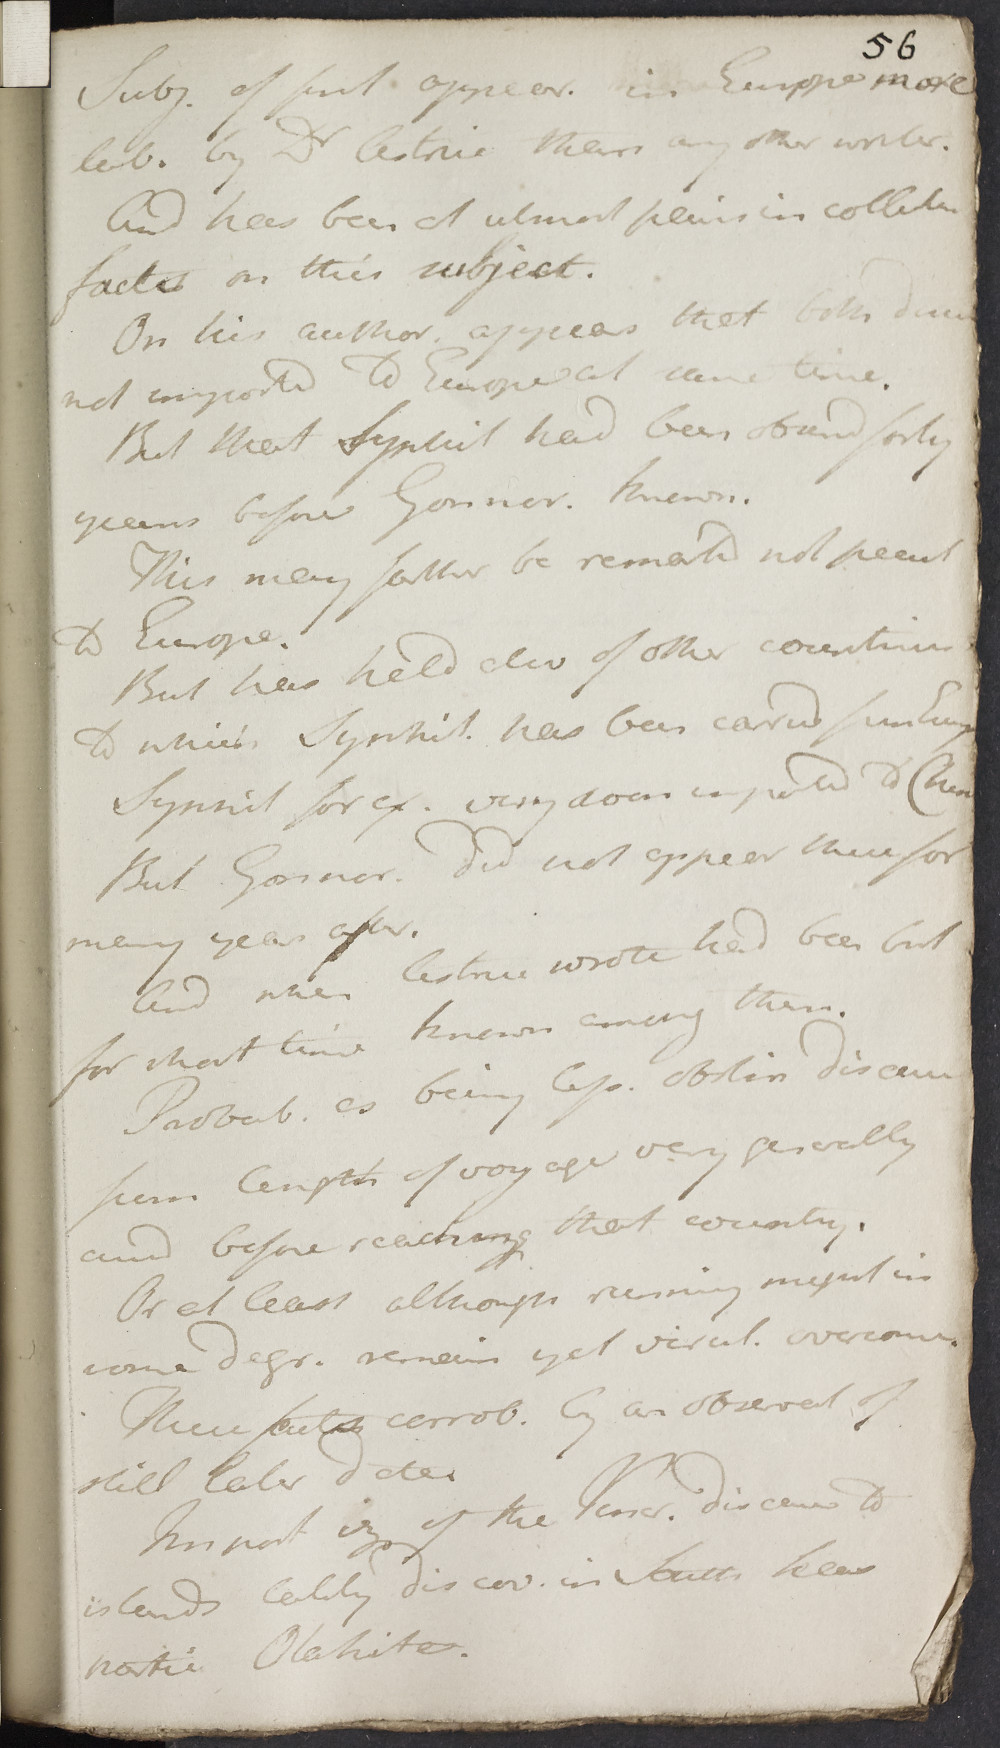 56
Subj. of first appear. in Europe more
lab. by Dr Astruc than any other writer.
And has been at utmost pains in collectin
facts on this subject.
On his author. appears that both
not imported to Europe at same time.
But that Syphil had been observd forty
years before Gonnor. known.
This may farther be remarkd not peculi
to Europe.
But has held also of other countries
to which Syphil. has been carried from Europ
Syphil for ex. very soon imported to Chin
But Gonnor. did not appear there for
many years after.
And when Astruc wrote had been but
for short time known among them.
Probab. as being less. obstin disease
from length of voyage very generally
curd before reaching that country.
Or at least although running might in
some degr. remain yet virul. overcome.
These facts corrob. by an observat of
still later date
Import viz of the Vener. disease to
islands lately discov. in South Seas
partic Otahite.